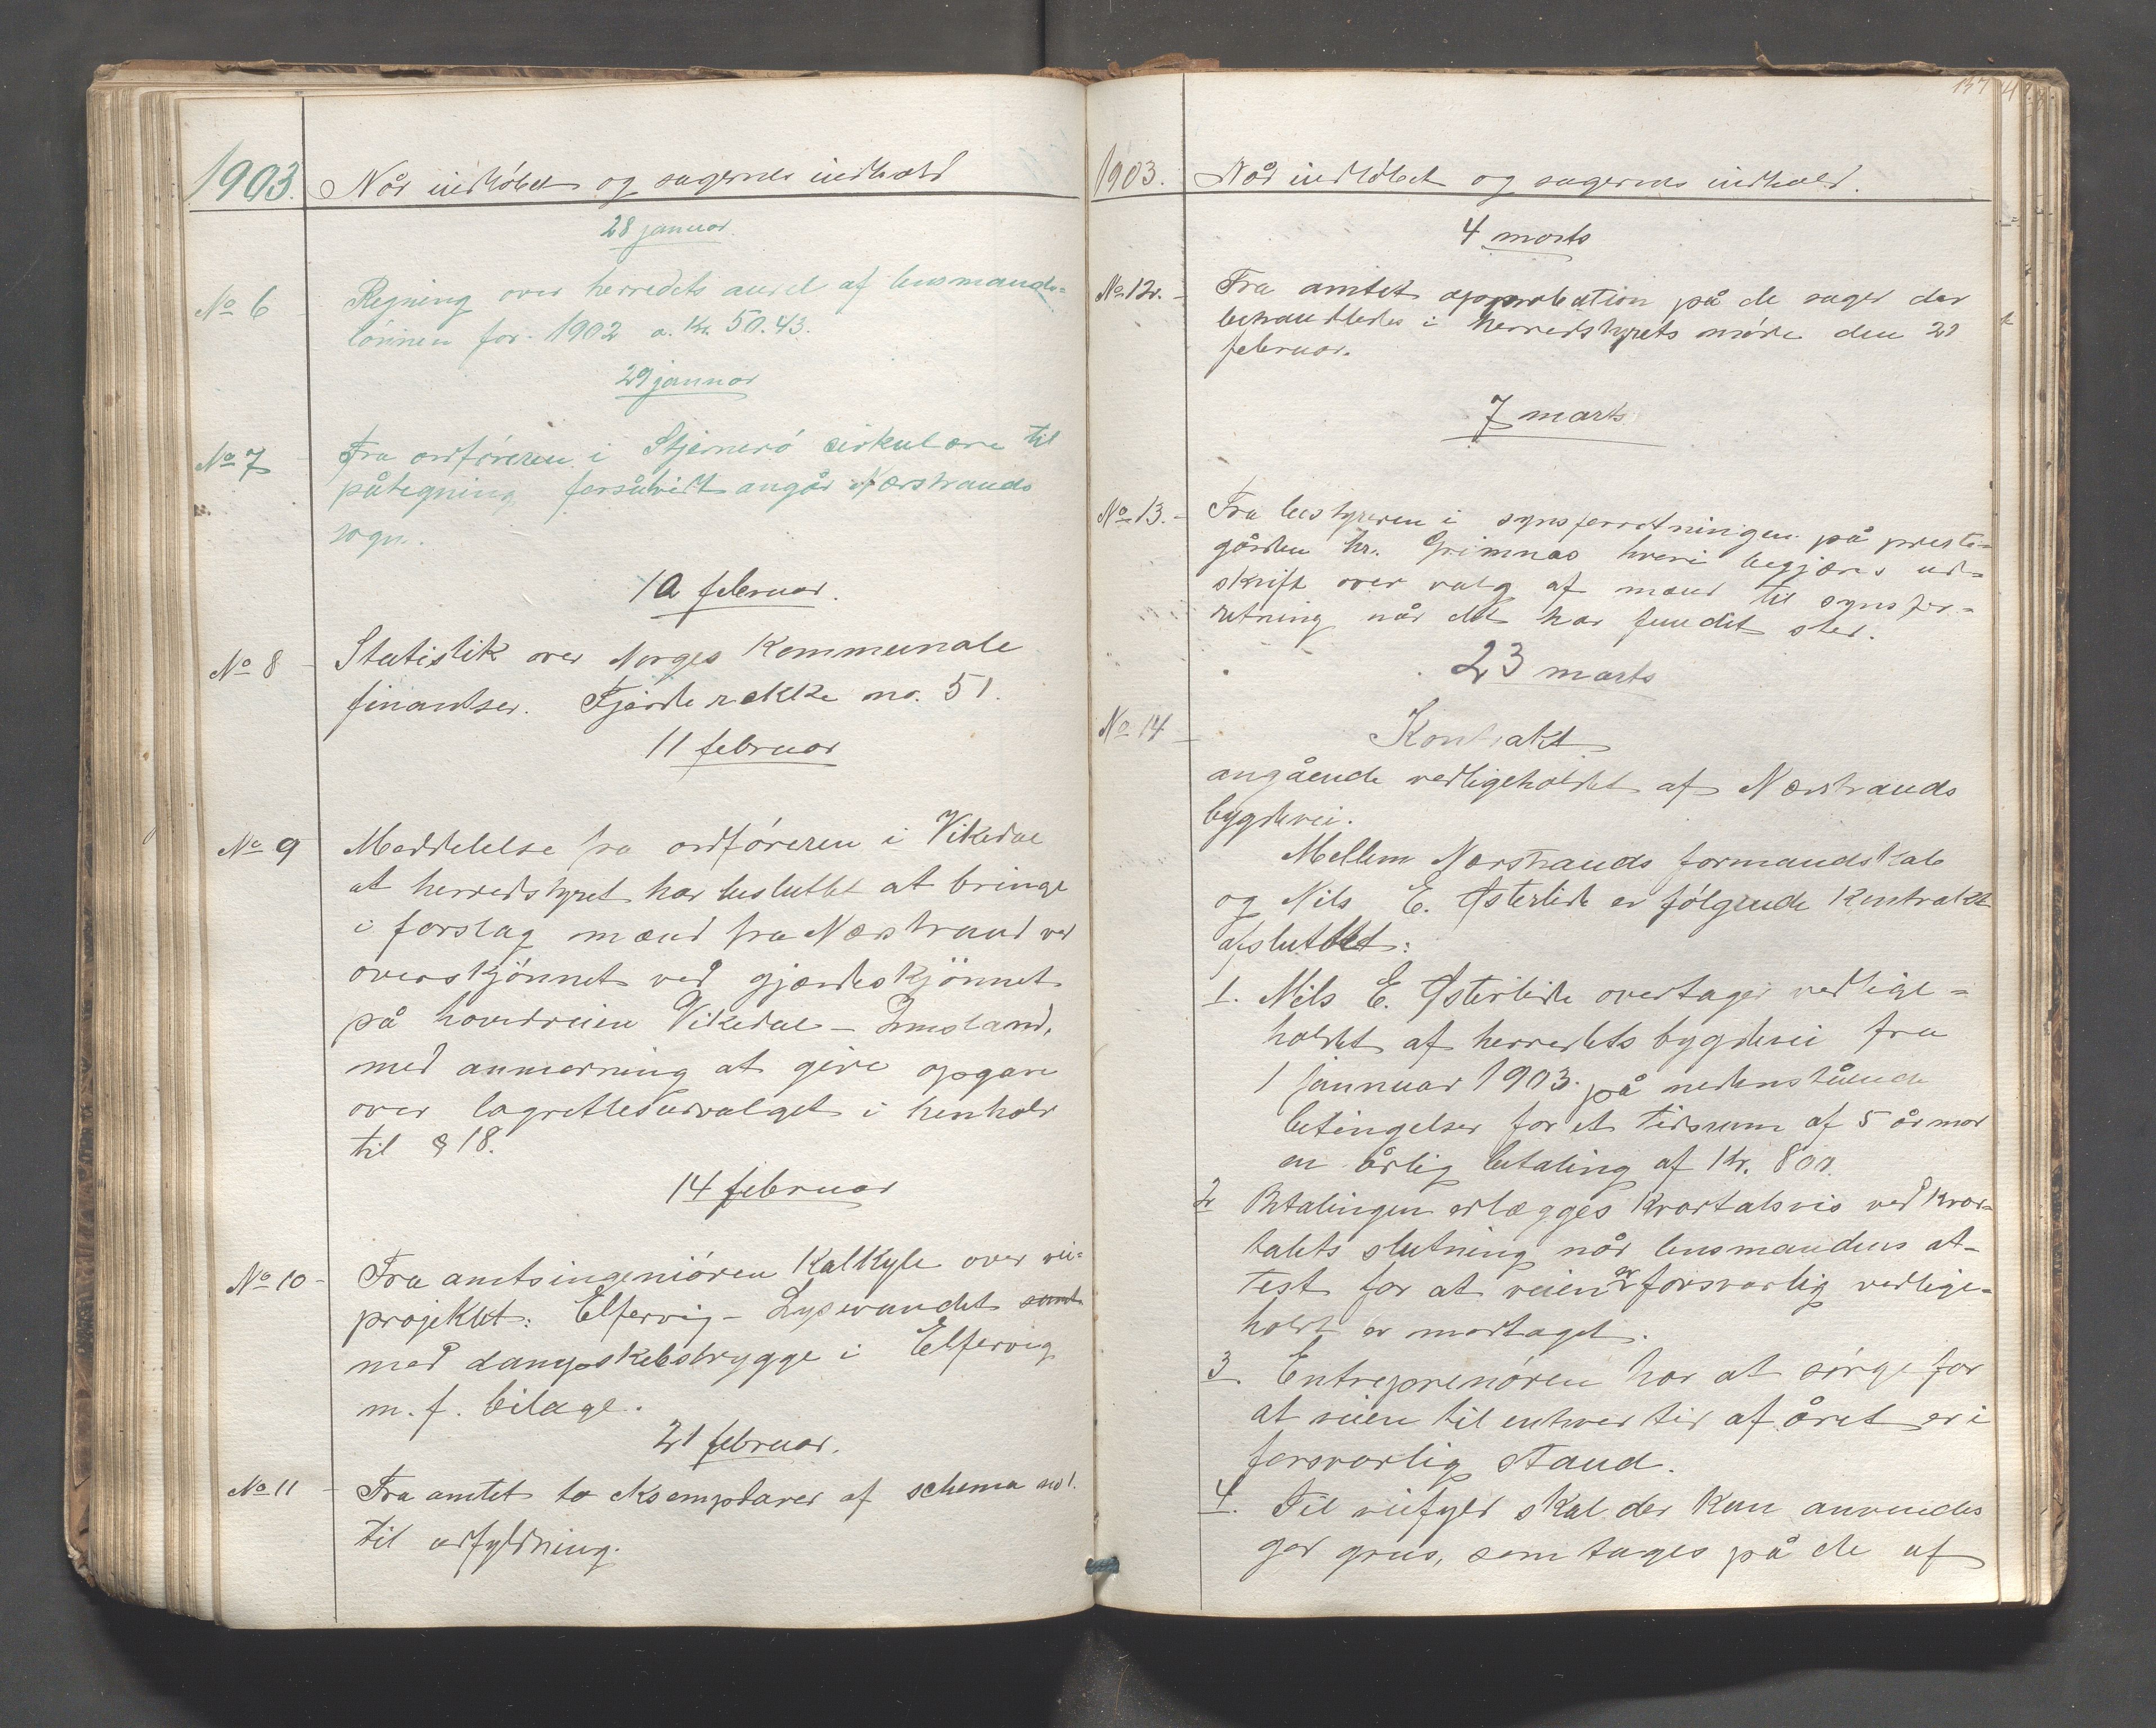 1903.
Når indløbet og sagernes indhold
28 januar.
No 6
Regning over herredets andel af lensmands-
lønnen for 1902 a. Kr. 50.43.
29 januar
No 7
Fra ordføreren i Stjernerö cirkulære til
påtegning forsåvidt angår Nærstrands
sogn.
10 februar.
No 8
Statistik over Norges Kommunale
finantser. Fjerde række no. 51.
11 februar
No 9
Meddelelse fra ordføreren i Vikedal
at herredstyret har besluttet at bringe
i forslag mænd fra Nærstrand ved
overskjønnet ved gjærdeskjønnet
på hovedveien Vikedal - Imsland,
med anmerning at give opgave
over lagrettesudvalget i henhold
til § 18.
14 februar
No 10
Fra amtsingeniøren Kalkyle over vei-
projektet: Elfervig - Lysevandet samt
med dampskibsbrygge i Elfervig
m. f. bilage.
21 februar.
No 11
Fra amtet to eksemplarer af schema no 1.
til udfyldning.
137
1903.
Når indløbet og sagernes indhold.
4 marts
No 12.
Fra amtet approbation på de sager der
behandledes i herredstyrets møde den 21
februar.
7 marts
No 13.
Fra bestyreren i synsforretningen på preste-
gården hr. Grimnæs hvori begjæres ud-
skrift over valg af mænd til synsfor-
retning når det har fundet sted.
23 marts
No 14
Kontrakt
angående vedligeholdet af Nærstrands
bygdevei.
Mellem Nærstrands formandskab
og Nils E. Østerlide er følgende kontrakt
afsluttet:
1. Nils E. Østerlide overtager vedlige-
holdet af herredets bygdevei fra
1 januar 1903. på nedenstående
betingelser for et tidsrum af 5 år mod
en årlig betaling af Kr. 800.
2 Betalingen erlægges kvartalsvis ved kvar-
talets slutning når lensmandens at-
test for at veien er forsvarlig vedlige-
holdt er modtaget.
3. Entreprenøren har at sørge for
at veien til enhver tid af året er i
forsvarlig stand.
4. Til veifyld skal der kun anvendes
god grus, som tages på de af